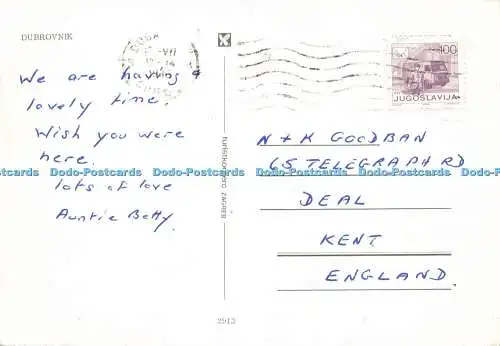 DUBROVNIK
We are having a
lovely time.
Wish you were
here.
lots of love
Auntie Betty.
turistkomerc ZAGREB
2913
100
JUGOSLAVIJA
N + K GOODBAN
65 TELEGRAPH RD
DEAL
KENT
ENGLAND.
Dodo-Postcards Dodo-Postcards Dodo-Postcards Dodo-Postcards